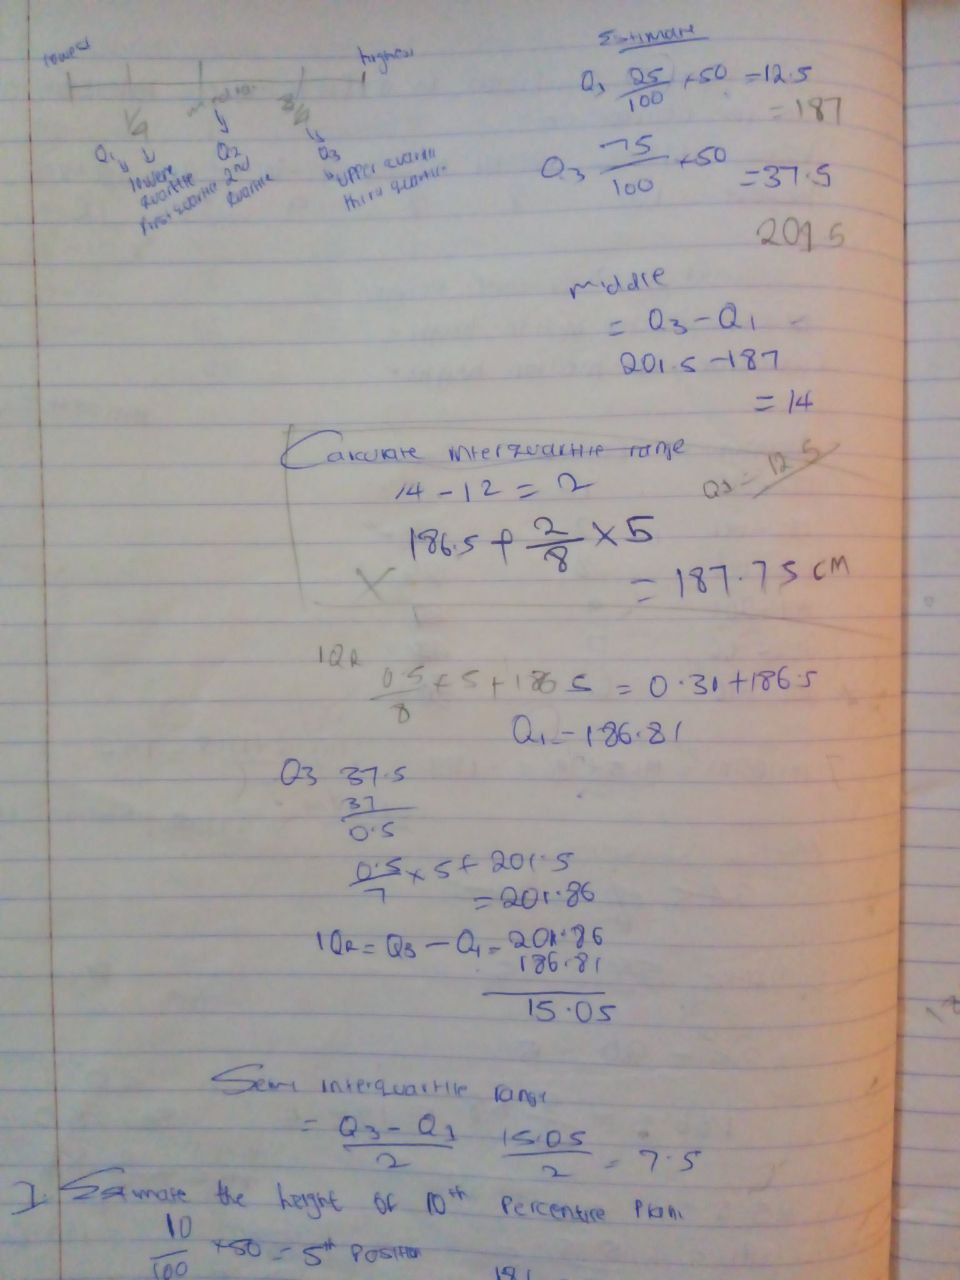 lowest
highest
Estimate
Q1 25/100 × 50 = 12.5
= 187
1/4
3/4
Q1
Q2
Q3
lower quartile
first quartile
2nd quartile
upper quartile
third quartile
Q3 75/100 × 50 = 37.5
201.5
middle
= Q3 - Q1
201.5 - 187
= 14
Calculate interquartile range
14 - 12 = 2
12.5
186.5 + 2/8 × 5
= 187.75 cm
IQR
0.5/8 × 5 + 186.5 = 0.31 + 186.5
Q1 = 186.81
Q3 37.5
37
0.5
0.5/7 × 5 + 201.5
= 201.86
IQR = Q3 - Q1 = 201.86
186.81
15.05
Semi interquartile range
= Q3 - Q1/2 15.05/2 = 7.5
Estimate the height of 10th percentile plant
10/100 × 50 = 5th position
181